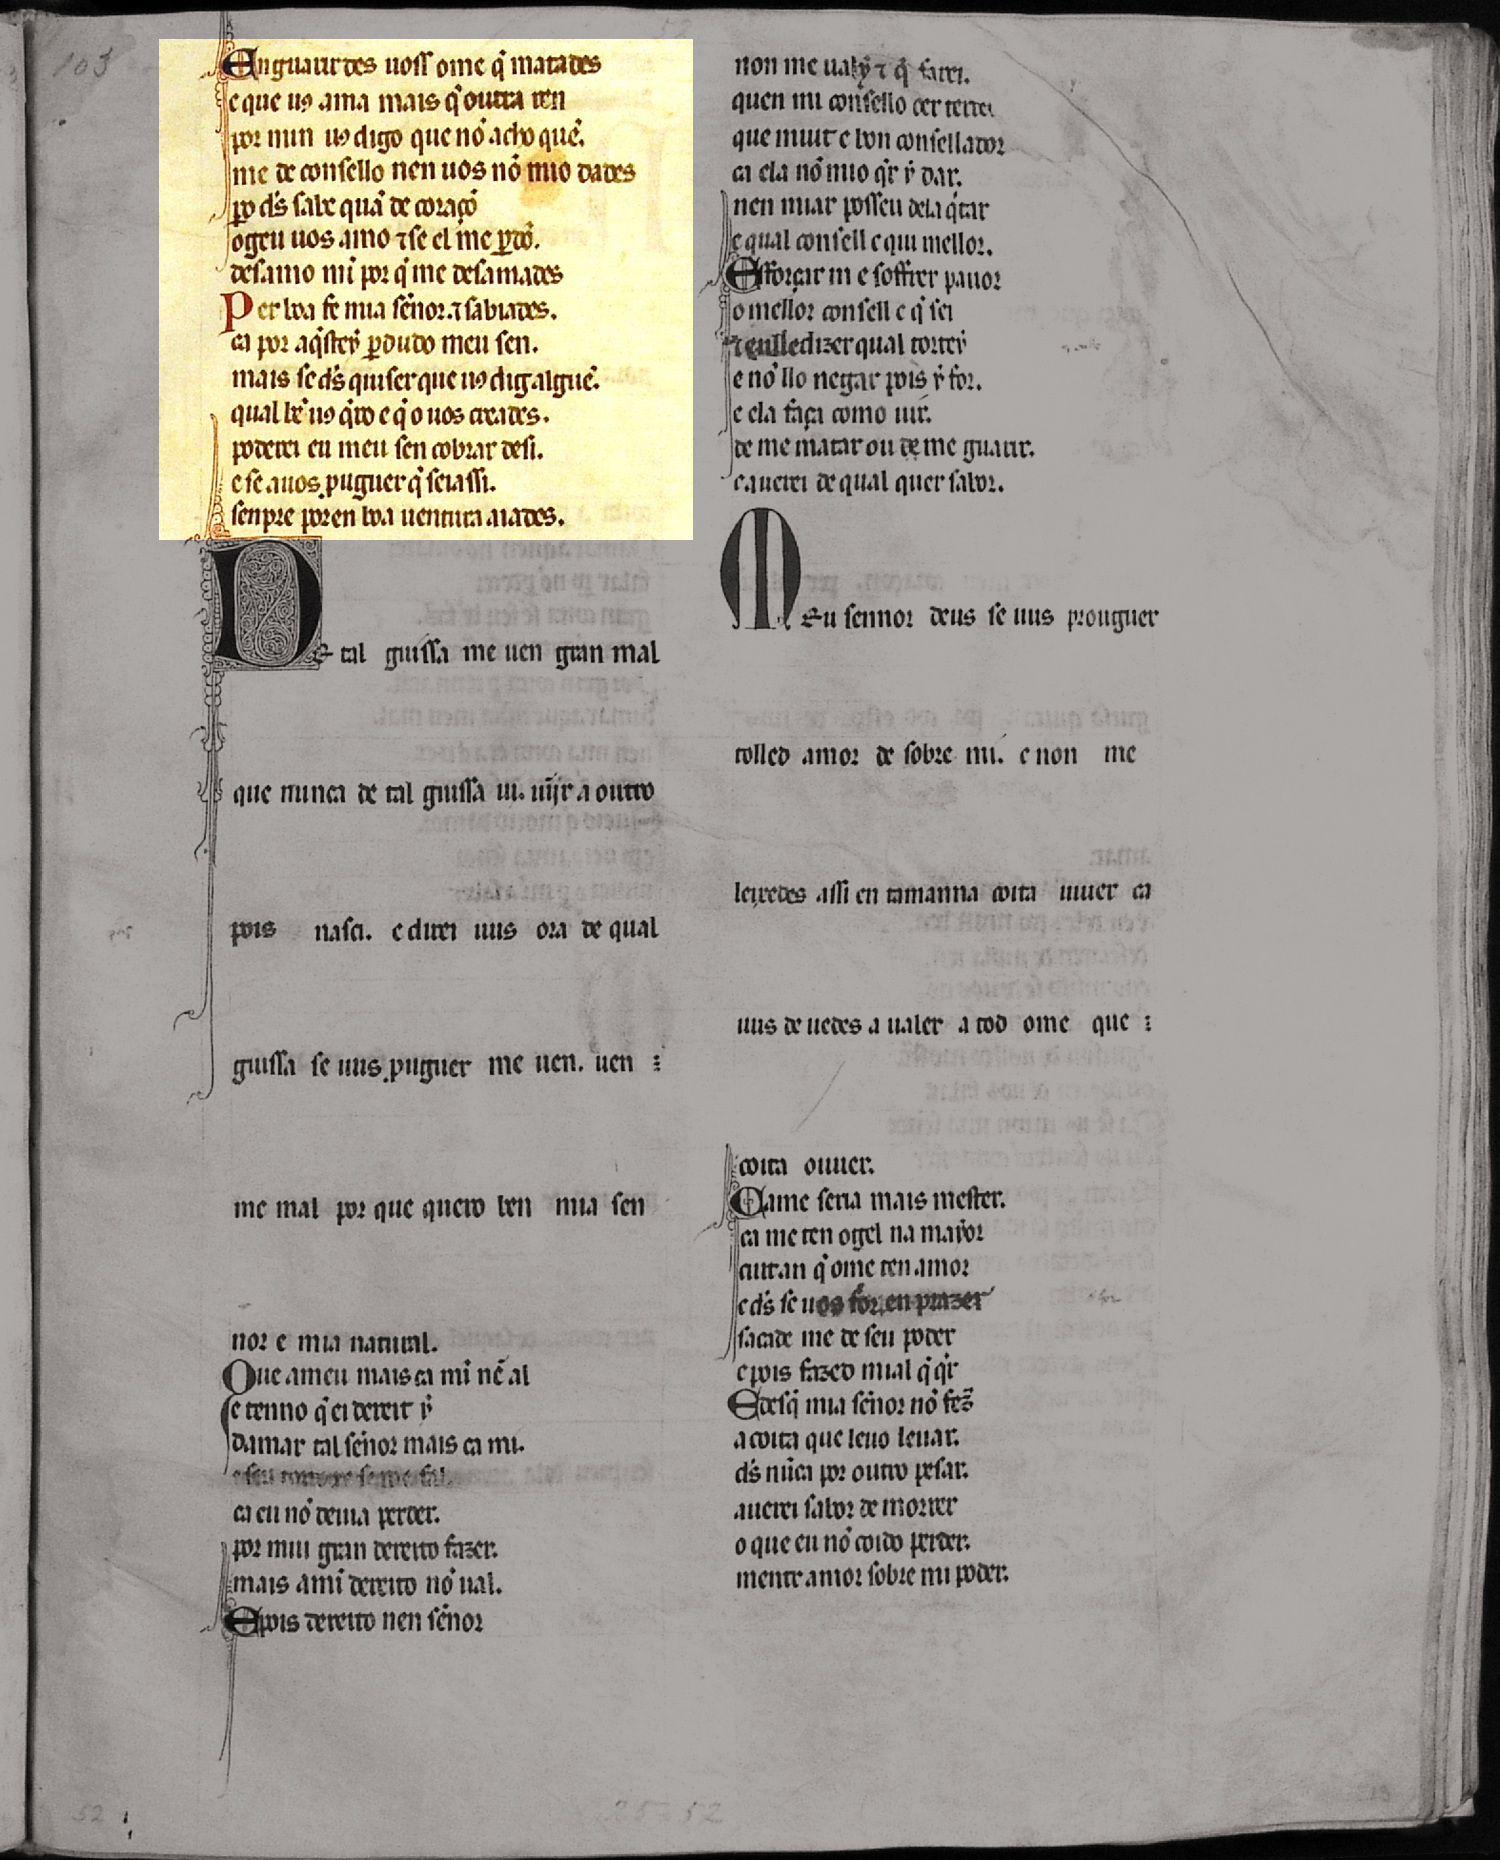 103
Enguarirdes uoss ome q̄ matades
e que uꝯ ama mais q̄ outra ren
por min uꝯ digo que nō acho quē.
me de consello nen uos nō mio dades
ꝑo d̄s sabe quā de coraçō
ogeu uos amo ⁊ se el me ꝑdō.
desamo mī por q̄ me desamades
Per bōa fe mia sēnor. ⁊ sabiades.
ca por aq̄sterẏ ꝑdudo meu sen.
mais se d̄s quiser que uꝯ dig alguē.
qual bē uꝯ q̄ro e q̄ o uos creades.
poderei eu meu sen cobrar desi.
e se auos ꝓuguer q̄ seiassi.
senpre poren bōa uentura aiades.
De tal guissa me uen gran mal
que nunca de tal guissa ui. uĳr a outro
pois nasci. e direi uus ora de qual
guissa se uus ꝓuguer me uen. uen :
me mal por que quero ben mia sen
nor e mia natural.
Que ameu mais ca mī nē al
e tenno q̄ ei dereit ẏ
damar tal sēnor mais ca mi.
ca eu nō deuia perder.
por miii gran dereito fazer.
mais amī dereito nō ual.
E pois dereito nen sēnor
non me ual ẏ ⁊ q̄ farei.
quen mi consello der terrei
que miute bon consellador
ca ela nō mio q̄r ẏ dar.
nen miar posseu dela q̄tar
e qual consell e qui mellor.
Efforçar m e soffrer pauor
o mellor consell e q̄ sei
reulledizer qual torterẏ
e nō llo negar pois ẏ for.
e ela faça como uir.
de me matar ou de me guarir.
e auerei de qual quer sabor.
Meu sennor deus se uus prouguer
tolled amor de sobre mi. e non me
leixedes assi en tamanna coita uiuer ca
uus deuedes a ualer a tod ome que :
coita ouuer.
Came seria mais mester.
ca me ten ogel na maẏor
cuitan q̄ ome ten amor
e d̄s se uos for en prazer
sacade me de seu poder
e pois fazed mi al q̄ q̄r
E desq̄ mia sēnor nō fez̄
a coita que leuo leuar.
d̄s nūca por outro pesar.
auerei sabor de morrer
o que eu nō coido perder.
mentr amor sobre mi poder.
52